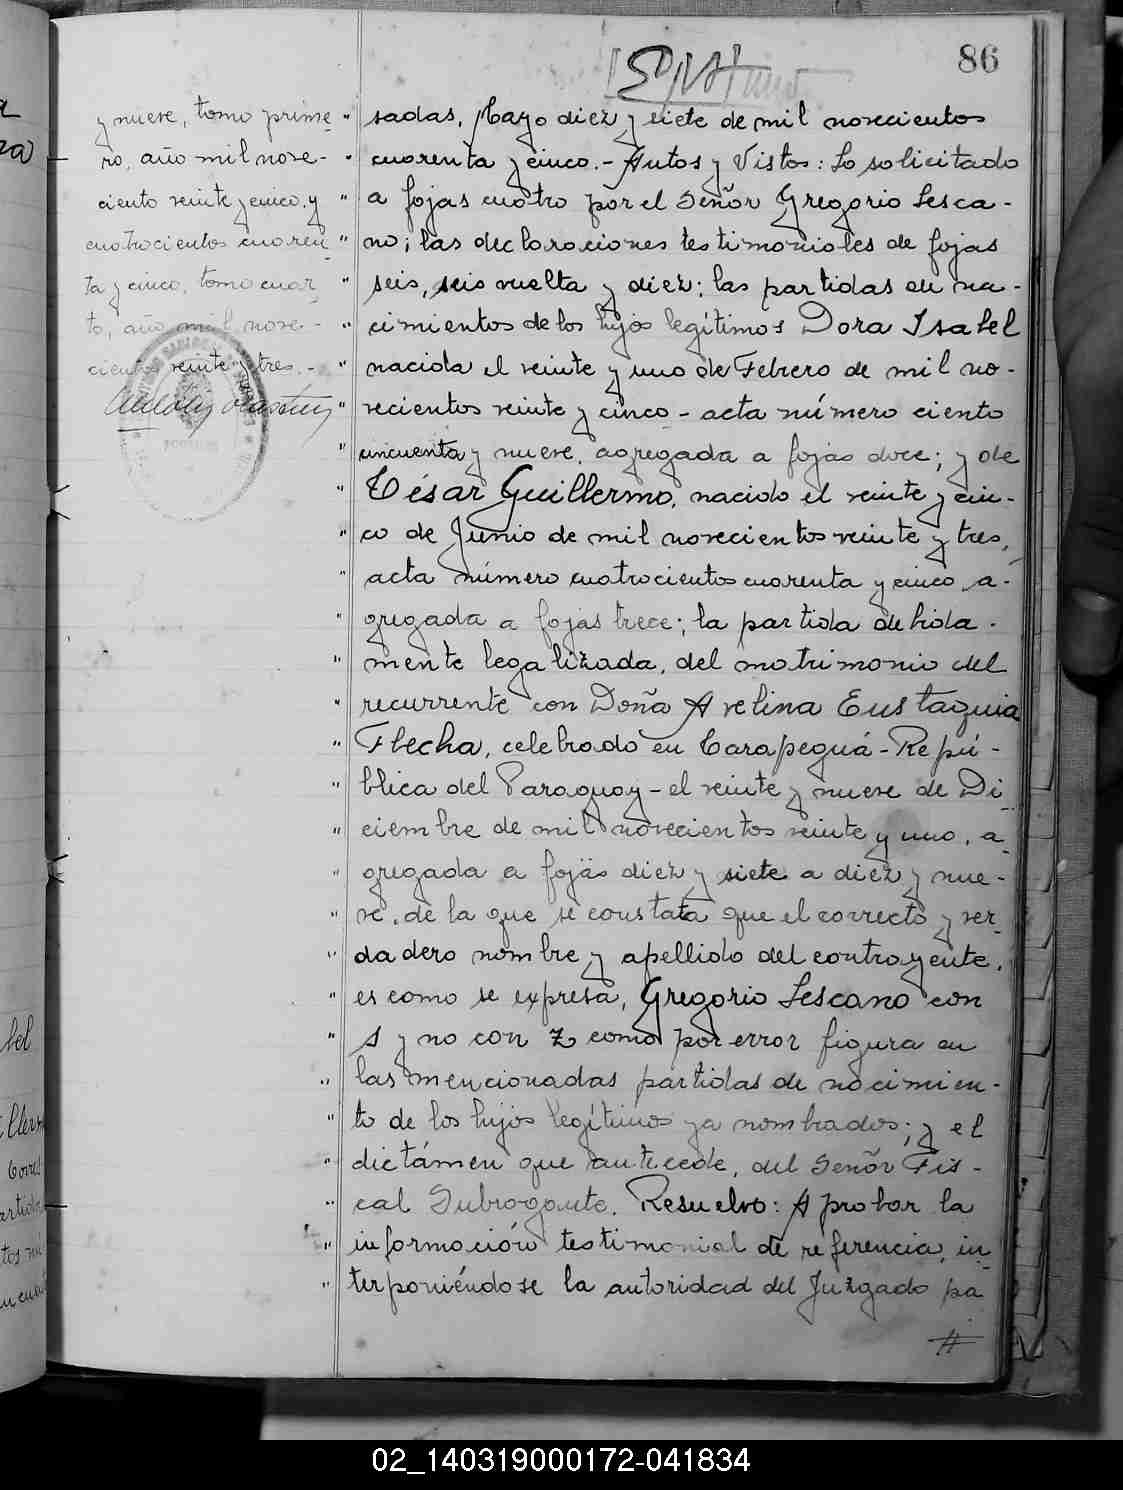 86
y nueve, tomo prime-
ro, año mil nove-
ciento veinte y cinco, y
cuatrocientos cuaren-
ta y cinco, tomo cuar-
to, año mil nove-
cientos veinte y tres.-
" sadas, Mayo diez y siete de mil novecientos
" cuarenta y cinco.- Autos y Vistos: Lo solicitado
" a fojas cuatro por el Señor Gregorio Lesca-
" no; las declaraciones testimoniales de fojas
" seis, seis vuelta y diez; las partidas de na-
" cimientos de los hijos legítimos Dora Isabel
" nacida el veinte y uno de Febrero de mil no-
" vecientos veinte y cinco - acta número ciento
" cincuenta y nueve, agregada a fojas doce; y de
" César Guillermo, nacido el veinte y cin-
" co de Junio de mil novecientos veinte y tres,
" acta número cuatrocientos cuarenta y cinco, a-
" gregada a fojas trece; la partida debida-
" mente legalizada, del matrimonio del
" recurrente con Doña Avelina Eustaquia
" Flecha, celebrado en Carapeguá - Repú-
" blica del Paraguay - el veinte y nueve de Di-
" ciembre de mil novecientos veinte y uno, a-
" gregada a fojas diez y siete a diez y nue-
" ve, de la que se constata que el correcto y ver-
" dadero nombre y apellido del contrayente,
" es como se expresa, Gregorio Lescano con
" s y no con z como por error figura en
" las mencionadas partidas de nacimien-
" to de los hijos legítimos ya nombrados; y el
" dictámen que antecede, del Señor Fis-
" cal Subrogante, Resuelvo: Aprobar la
" información testimonial de referencia, in-
" terponiéndose la autoridad del Juzgado pa
//
02_140319000172-041834